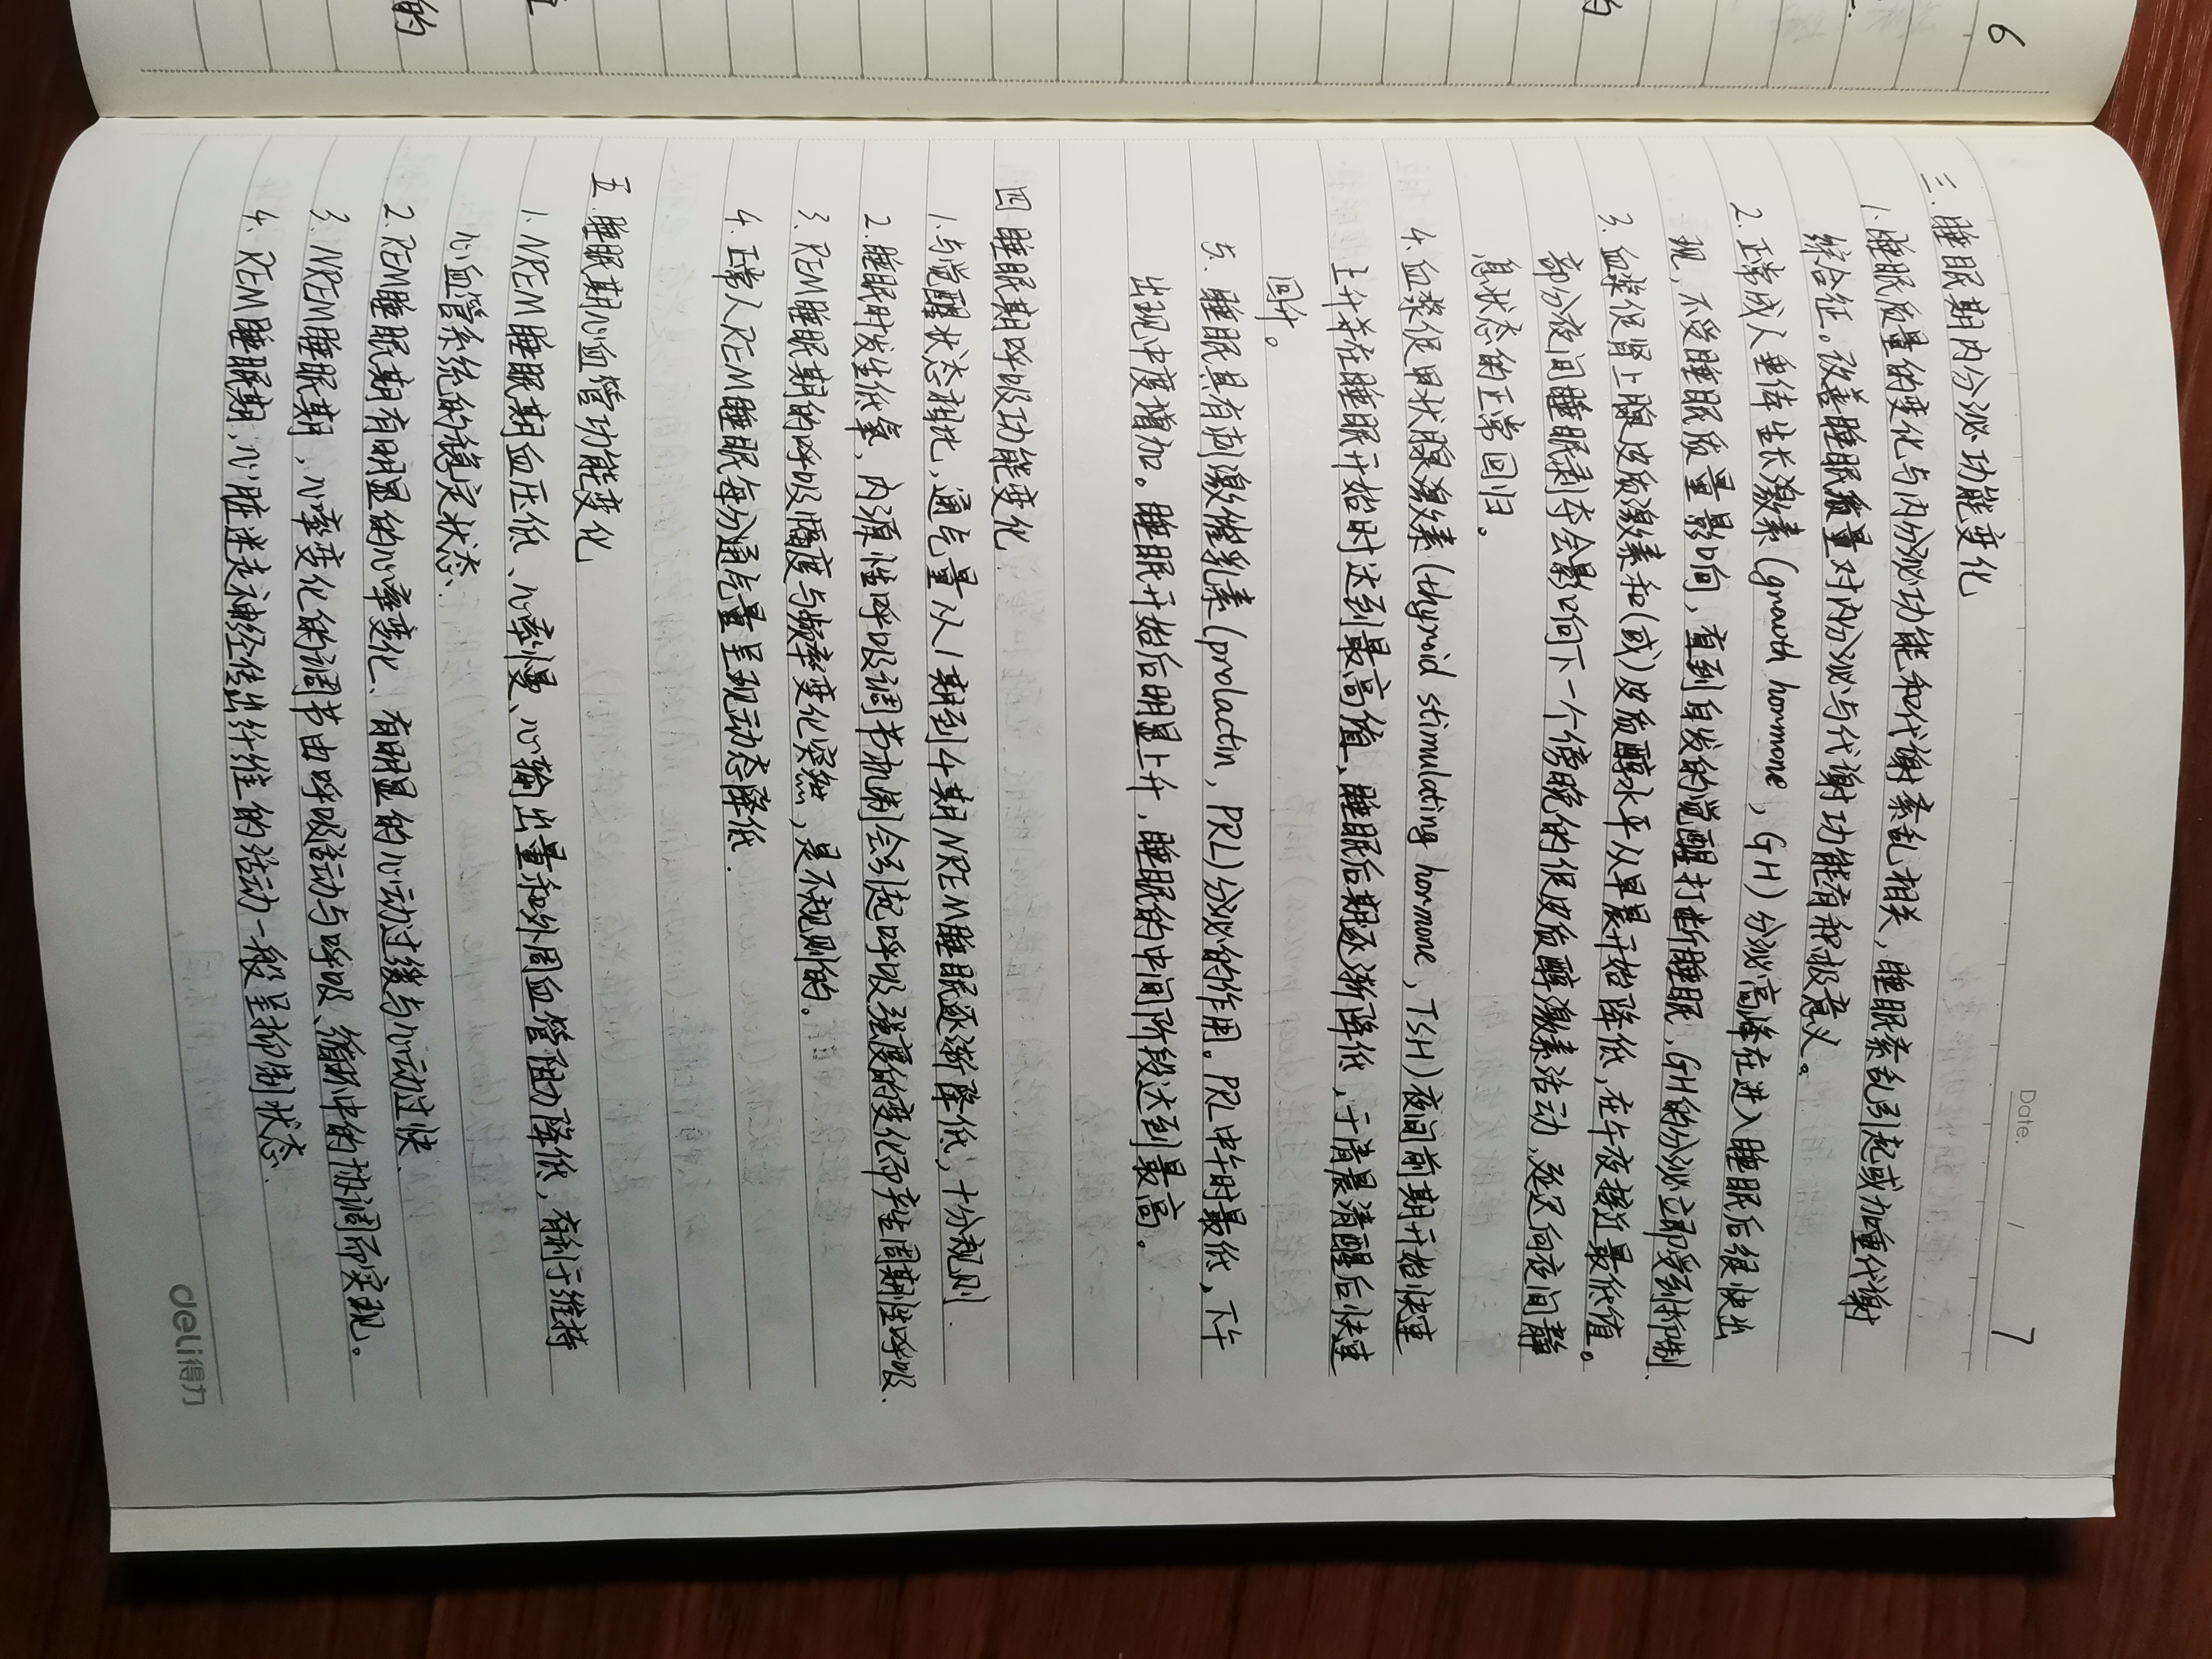 6
7
Date.    /
三. 睡眠期内分泌功能变化
1. 睡眠质量的变化与内分泌功能和代谢紊乱相关，睡眠紊乱引起或加重代谢
综合征。改善睡眠质量对内分泌与代谢功能有积极意义。
2. 正常成人垂体生长激素(growth hormone，GH)分泌高峰在进入睡眠后很快出
现，不受睡眠质量影响，直到自发的觉醒打断睡眠，GH的分泌立即受到抑制.
3. 血浆促肾上腺皮质激素和(或)皮质醇水平从早晨开始降低，在午夜接近最低值。
部分夜间睡眠剥夺会影响下一个傍晚的促皮质醇激素活动，延迟向夜间静
息状态的正常回归。
4. 血浆促甲状腺激素(thyroid stimulating hormone，TSH)夜间前期开始快速
上升并在睡眠开始时达到最高值、睡眠后期逐渐降低，于清晨清醒后快速
回升。
5. 睡眠具有刺激催乳素(prolactin，PRL)分泌的作用。PRL中午时最低，下午
出现中度增加。睡眠开始后明显上升，睡眠的中间阶段达到最高。
四 睡眠期呼吸功能变化
1. 与觉醒状态相比，通气量从1期到4期NREM睡眠逐渐降低，十分规则.
2. 睡眠时发生低氧，内源性呼吸调节机制会引起呼吸强度的变化而产生周期性呼吸.
3. REM睡眠期的呼吸幅度与频率变化突然，是不规则的。
4. 正常人REM睡眠每分通气量呈现动态降低.
五. 睡眠期心血管功能变化
1. NREM睡眠期血压低、心率慢、心输出量和外周血管阻力降低，有利于维持
心血管系统的稳定状态.
2. REM睡眠期有明显的心率变化、有明显的心动过缓与心动过快.
3. NREM睡眠期，心率变化的调节由呼吸活动与呼吸、循环中的协调而实现。
4. REM睡眠期，心脏迷走神经传出纤维的活动一般呈抑制状态.
deli得力